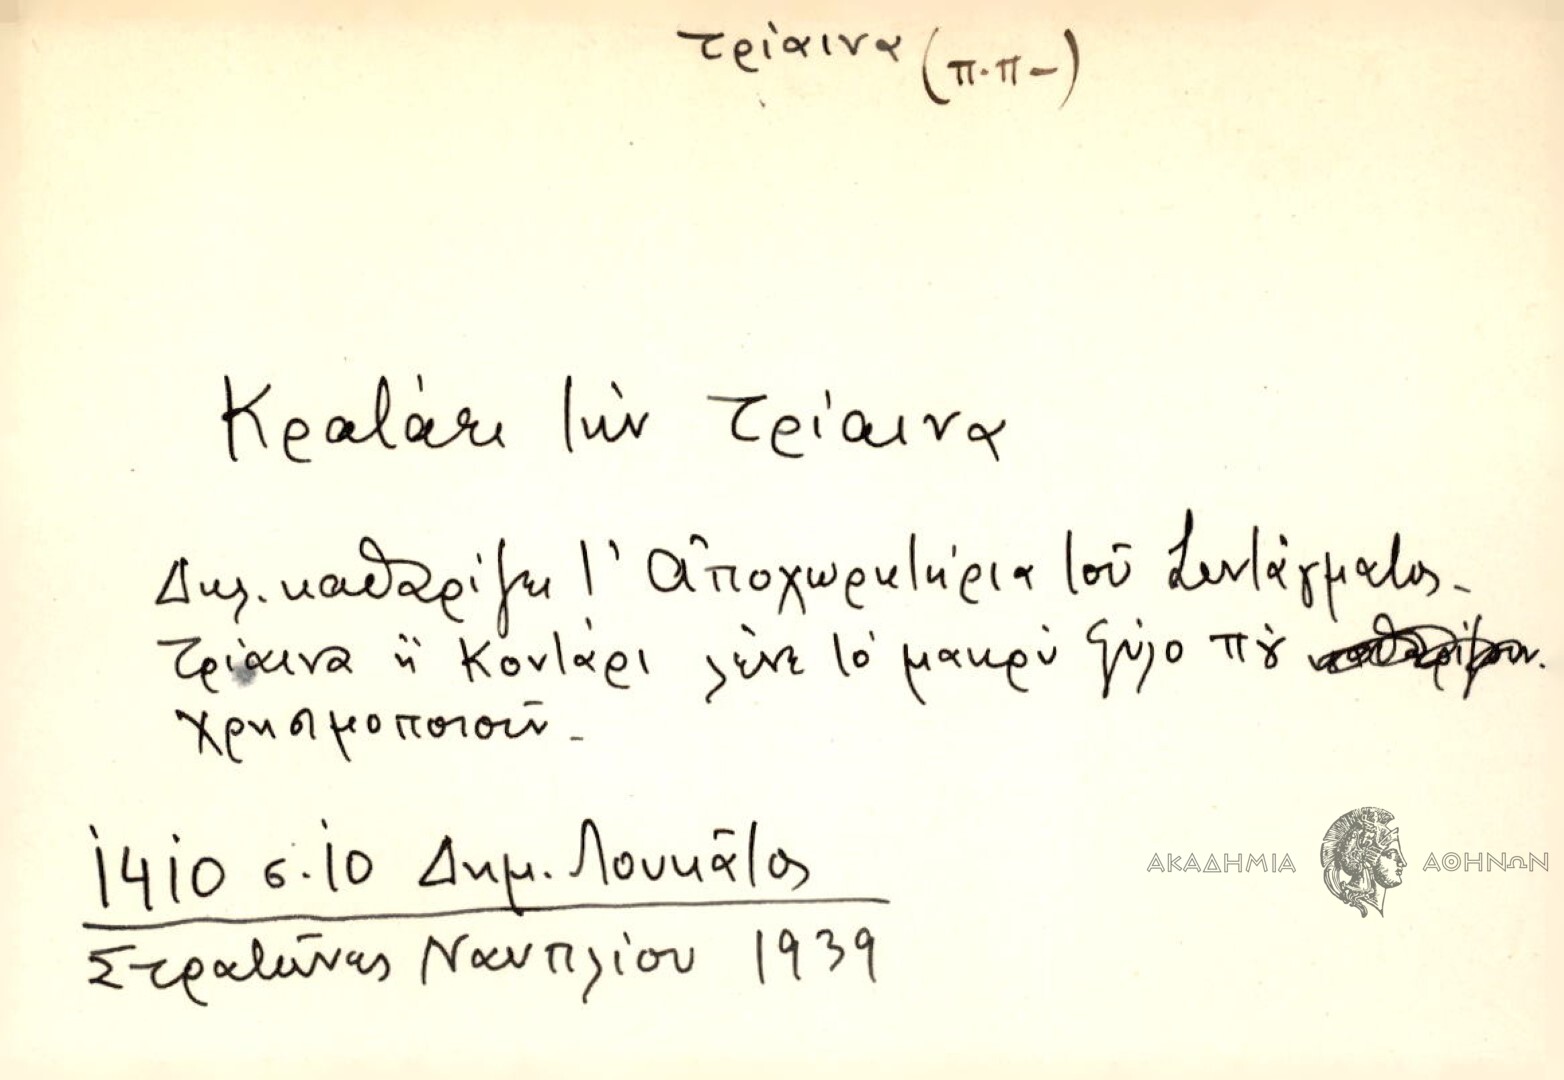 τρίαινα (π.π-)
Κρατάει τὴν τρίαινα
Δηλ. καθαρίζει τ' ἀποχωρητήρια τοῦ Συντάγματος-
Τρίαινα ἢ Κοντάρι λένε τὸ μακρὺ ξύλο πȣ̀
χρησιμοποιοῦν.-
1410 σ.10 Δημ. Λουκᾶτος
Στρατῶνες Ναυπλίου 1939
ΑΚΑΔΗΜΙΑ ΑΘΗΝΩΝ